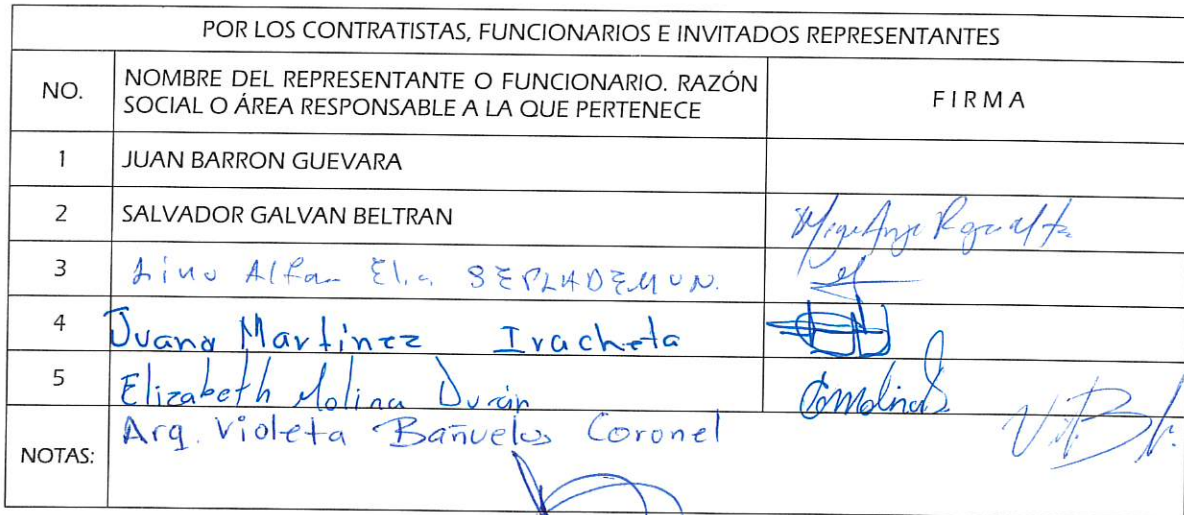 POR LOS CONTRATISTAS, FUNCIONARIOS E INVITADOS REPRESENTANTES
NO.
NOMBRE DEL REPRESENTANTE O FUNCIONARIO. RAZÓN
SOCIAL O ÁREA RESPONSABLE A LA QUE PERTENECE
FIRMA
1 JUAN BARRON GUEVARA
2 SALVADOR GALVAN BELTRAN
3 Lino SEPLADEMUN.
4 Juana Martinez Iracheta
5 Elizabeth Molina Durán
NOTAS: Arq. Violeta Bañuelos Coronel